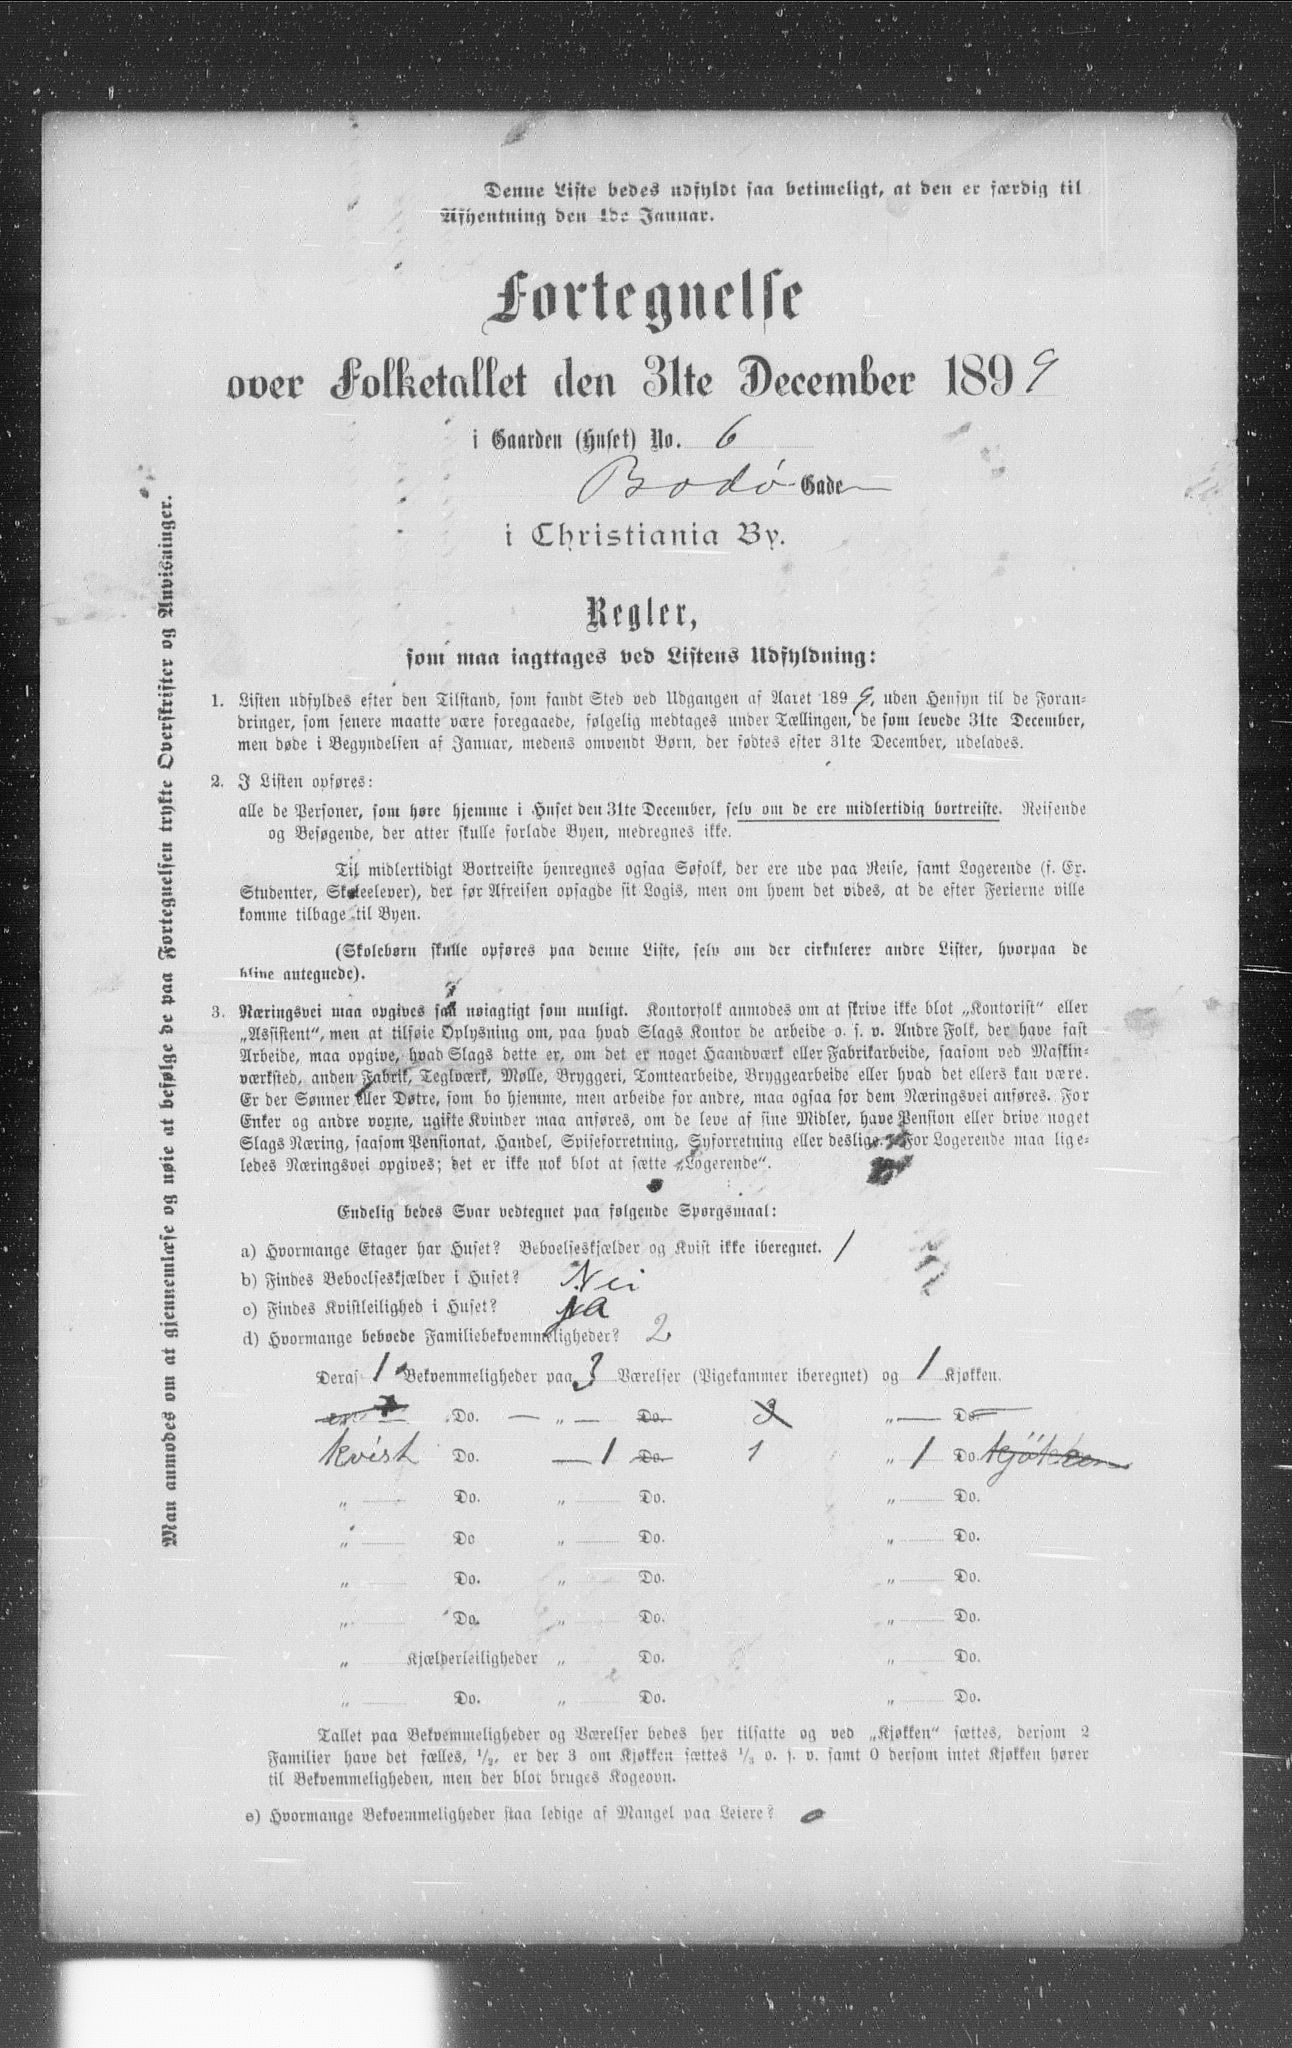 Denne Liste bedes udfyldt saa betimeligt, at den er færdig til
Afhentning den 4de Januar.
Fortegnelse
over Folketallet den 31te December 1899
i Gaarden (Huset) No. 6
Bodø Gade
i Christiania By.
Regler,
som maa iagttages ved Listens Udfyldning:
1. Listen udfyldes efter den Tilstand, som fandt Sted ved Udgangen af Aaret 1899, uden Hensyn til de Foran-
dringer, som senere maatte være foregaaede, følgelig medtages under Tællingen, de som levede 31te December,
men døde i Begyndelsen af Januar, medens omvendt Børn, der fødtes efter 31te December, udelades.
2. I Listen opføres:
alle de Personer, som høre hjemme i Huset den 31te December, selv om de ere midlertidig bortreiste. Reisende
og Besøgende, der atter skulle forlade Byen, medregnes ikke.
Til midlertidigt Bortreiste henregnes ogsaa Søfolk, der ere ude paa Reise, samt Logerende (f. Ex.
Studenter, Skoleelever), der før Afreisen opsagde sit Logis, men om hvem det vides, at de efter Ferierne ville
komme tilbage til Byen.
(Skolebørn skulle opføres paa denne Liste, selv om der cirkulerer andre Lister, hvorpaa de
blive antegnede).
3. Næringsvei maa opgives saa nøiagtigt som muligt. Kontorfolk anmodes om at skrive ikke blot „Kontorist“ eller
„Assistent“, men at tilføie Oplysning om, paa hvad Slags Kontor de arbeide o. s. v. Andre Folk, der have fast
Arbeide, maa opgive, hvad Slags dette er, om det er noget Haandværk eller Fabrikarbeide, saasom ved Maskin-
værksted, anden Fabrik, Teglværk, Mølle, Bryggeri, Tomtearbeide, Bryggearbeide eller hvad det ellers kan være.
Er der Sønner eller Døtre, som bo hjemme, men arbeide for andre, maa ogsaa for dem Næringsvei anføres. For
Enker og andre voxne, ugifte Kvinder maa anføres, om de leve af sine Midler, have Pension eller drive noget
Slags Næring, saasom Pensionat, Handel, Spiseforretning, Syforretning eller deslige. For Logerende maa lige-
ledes Næringsvei opgives; det er ikke nok blot at sætte „Logerende“.
Endelig bedes Svar vedtegnet paa følgende Spørgsmaal:
a) Hvormange Etager har Huset? Beboelseskjælder og Kvist ikke iberegnet. 1
b) Findes Beboelseskjælder i Huset? Nei
c) Findes Kvistleilighed i Huset? ja
d) Hvormange beboede Familiebekvemmeligheder? 2
Deraf 1 Bekvemmeligheder paa 3 Værelser (Pigekammer iberegnet) og 1 Kjøkken.
Do. „ Do. 3 „ Do
kvist Do. 1 Do. 1 „ 1 Do. kjökken
„ Do. „ Do. „ Do.
„ Do „ Do. „ Do.
„ Do. „ Do. „ Do.
„ Do. „ Do. „ Do.
„ Kjælderleiligheder „ Do. „ Do.
„ Do. „ Do. „ Do.
Tallet paa Bekvemmeligheder og Værelser bedes her tilsatte og ved „Kjøkken“ sættes, dersom 2
Familier have det fælles, 1/2, er der 3 om Kjøkken sættes 1/3 o. s. v. samt 0 dersom intet Kjøkken hører
til Bekvemmeligheden, men der blot bruges Kogeovn.
e) Hvormange Bekvemmeligheder staa ledige af Mangel paa Leiere? 0
Man anmodes om at gjennemlæse og nøie at befølge de paa Fortegnelsen trykte Overskrifter og Anvisninger.